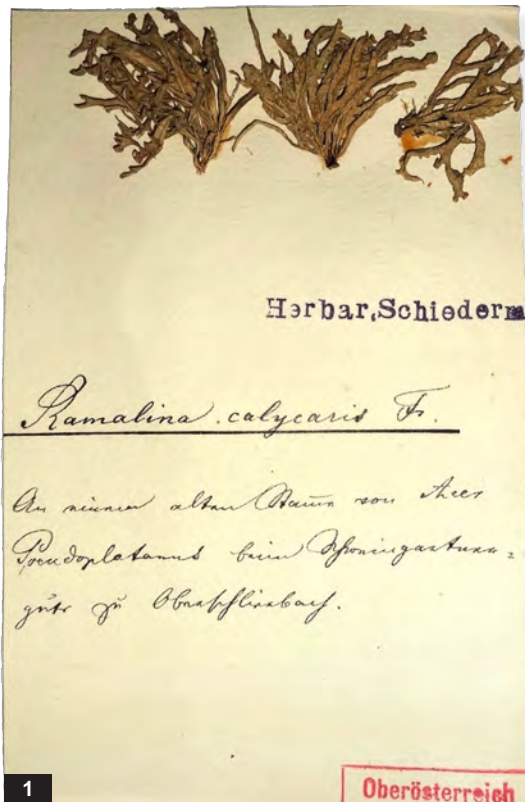 Herbar. Schiederm
Ramalina calycaris Fr.
An einem alten Stamm von Acer
Pseudoplatanus beim
gute zu Oberschlierbach.
Oberösterreich
1